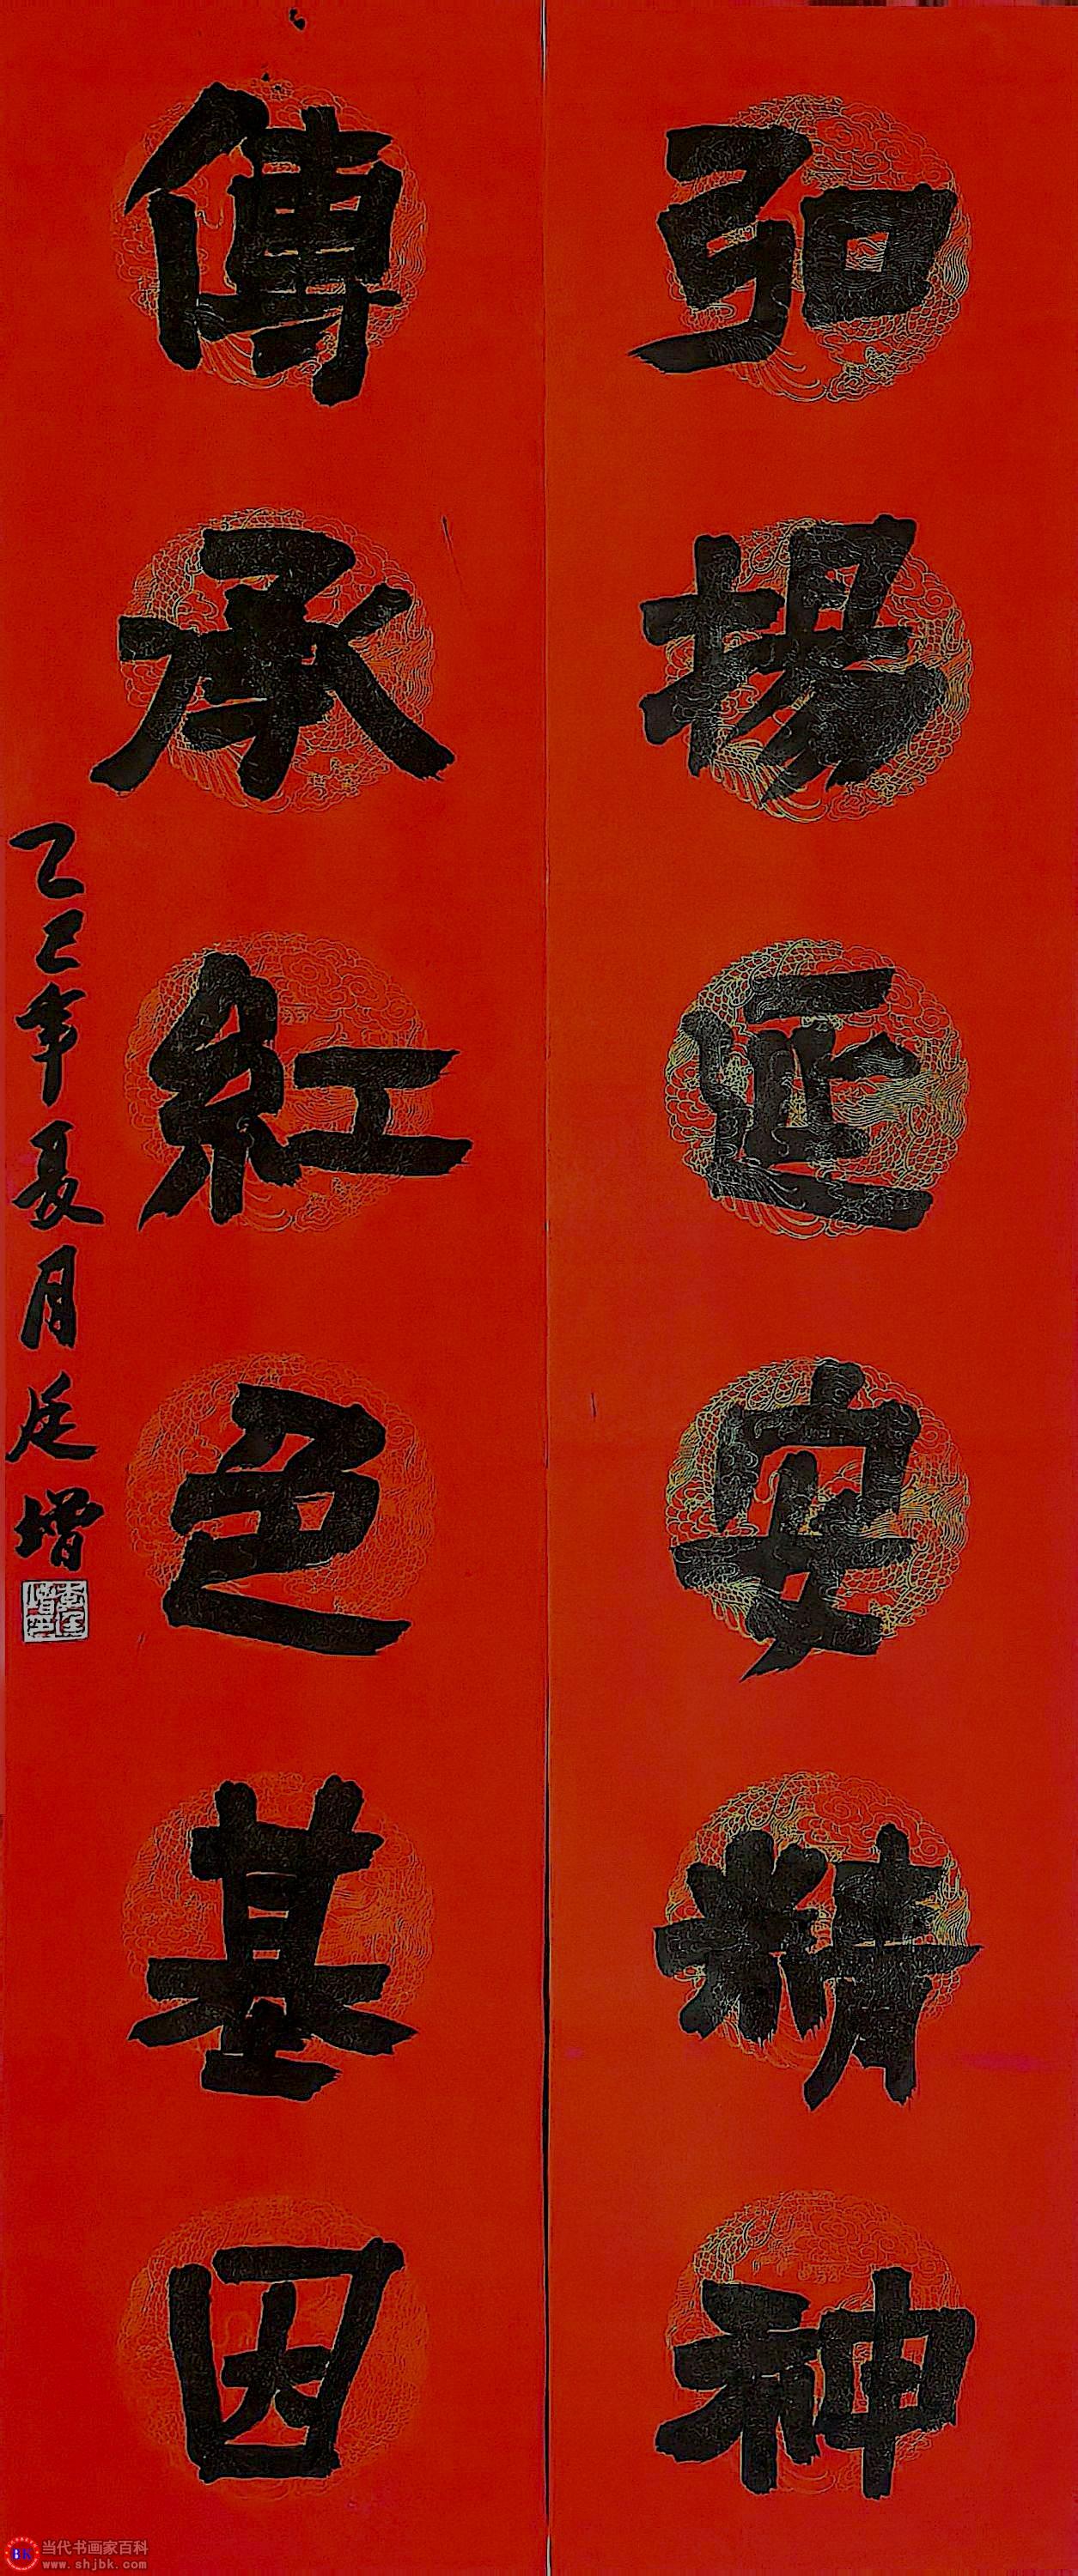 弘揚延安精神
傳承紅色基因
乙巳年夏月廷增
当代书画家百科
www.shjbk.com